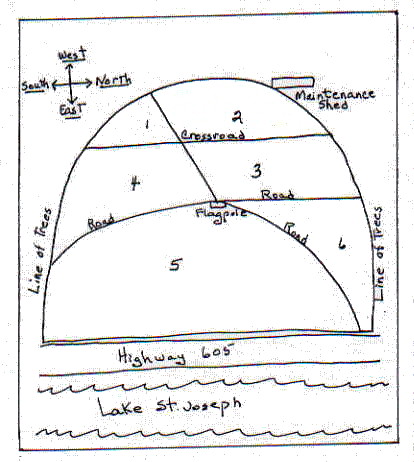 West
South
North
East
Maintenance
Shed
1
2
Crossroad
3
4
Road
Road
Flagpole
Road
5
6
Line of Trees
Line of Trees
Highway 605
Lake St. Joseph